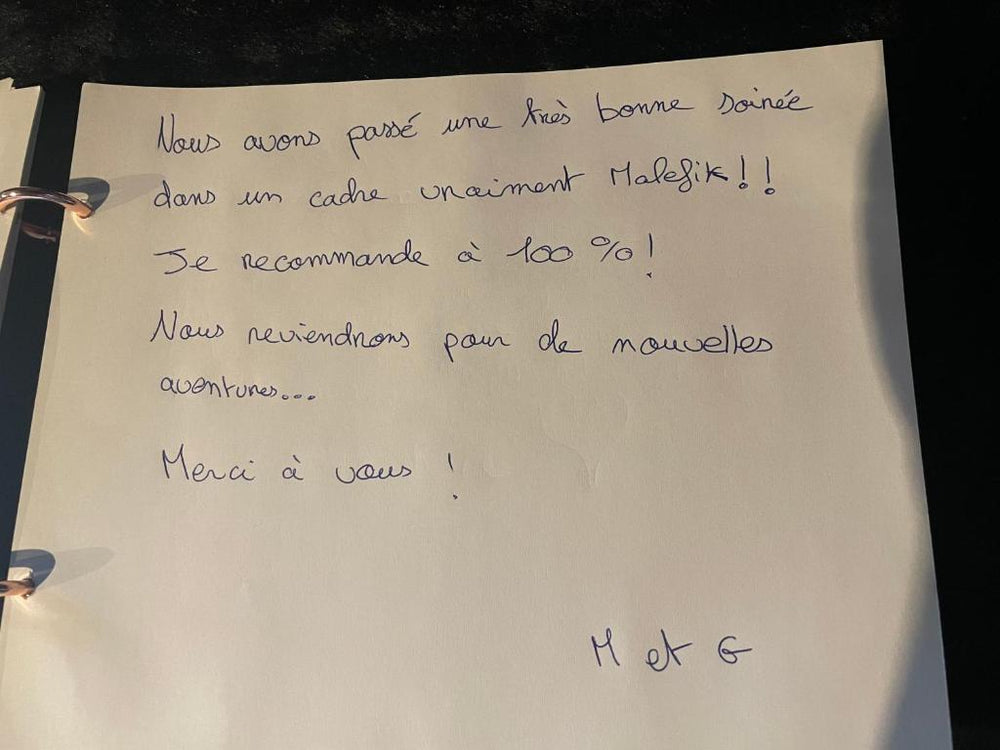 Nous avons passé une très bonne soirée
dans un cadre vraiment Malefik!!
Je recommande à 100 %!
Nous reviendrons pour de nouvelles
aventures...
Merci à vous !
M et G